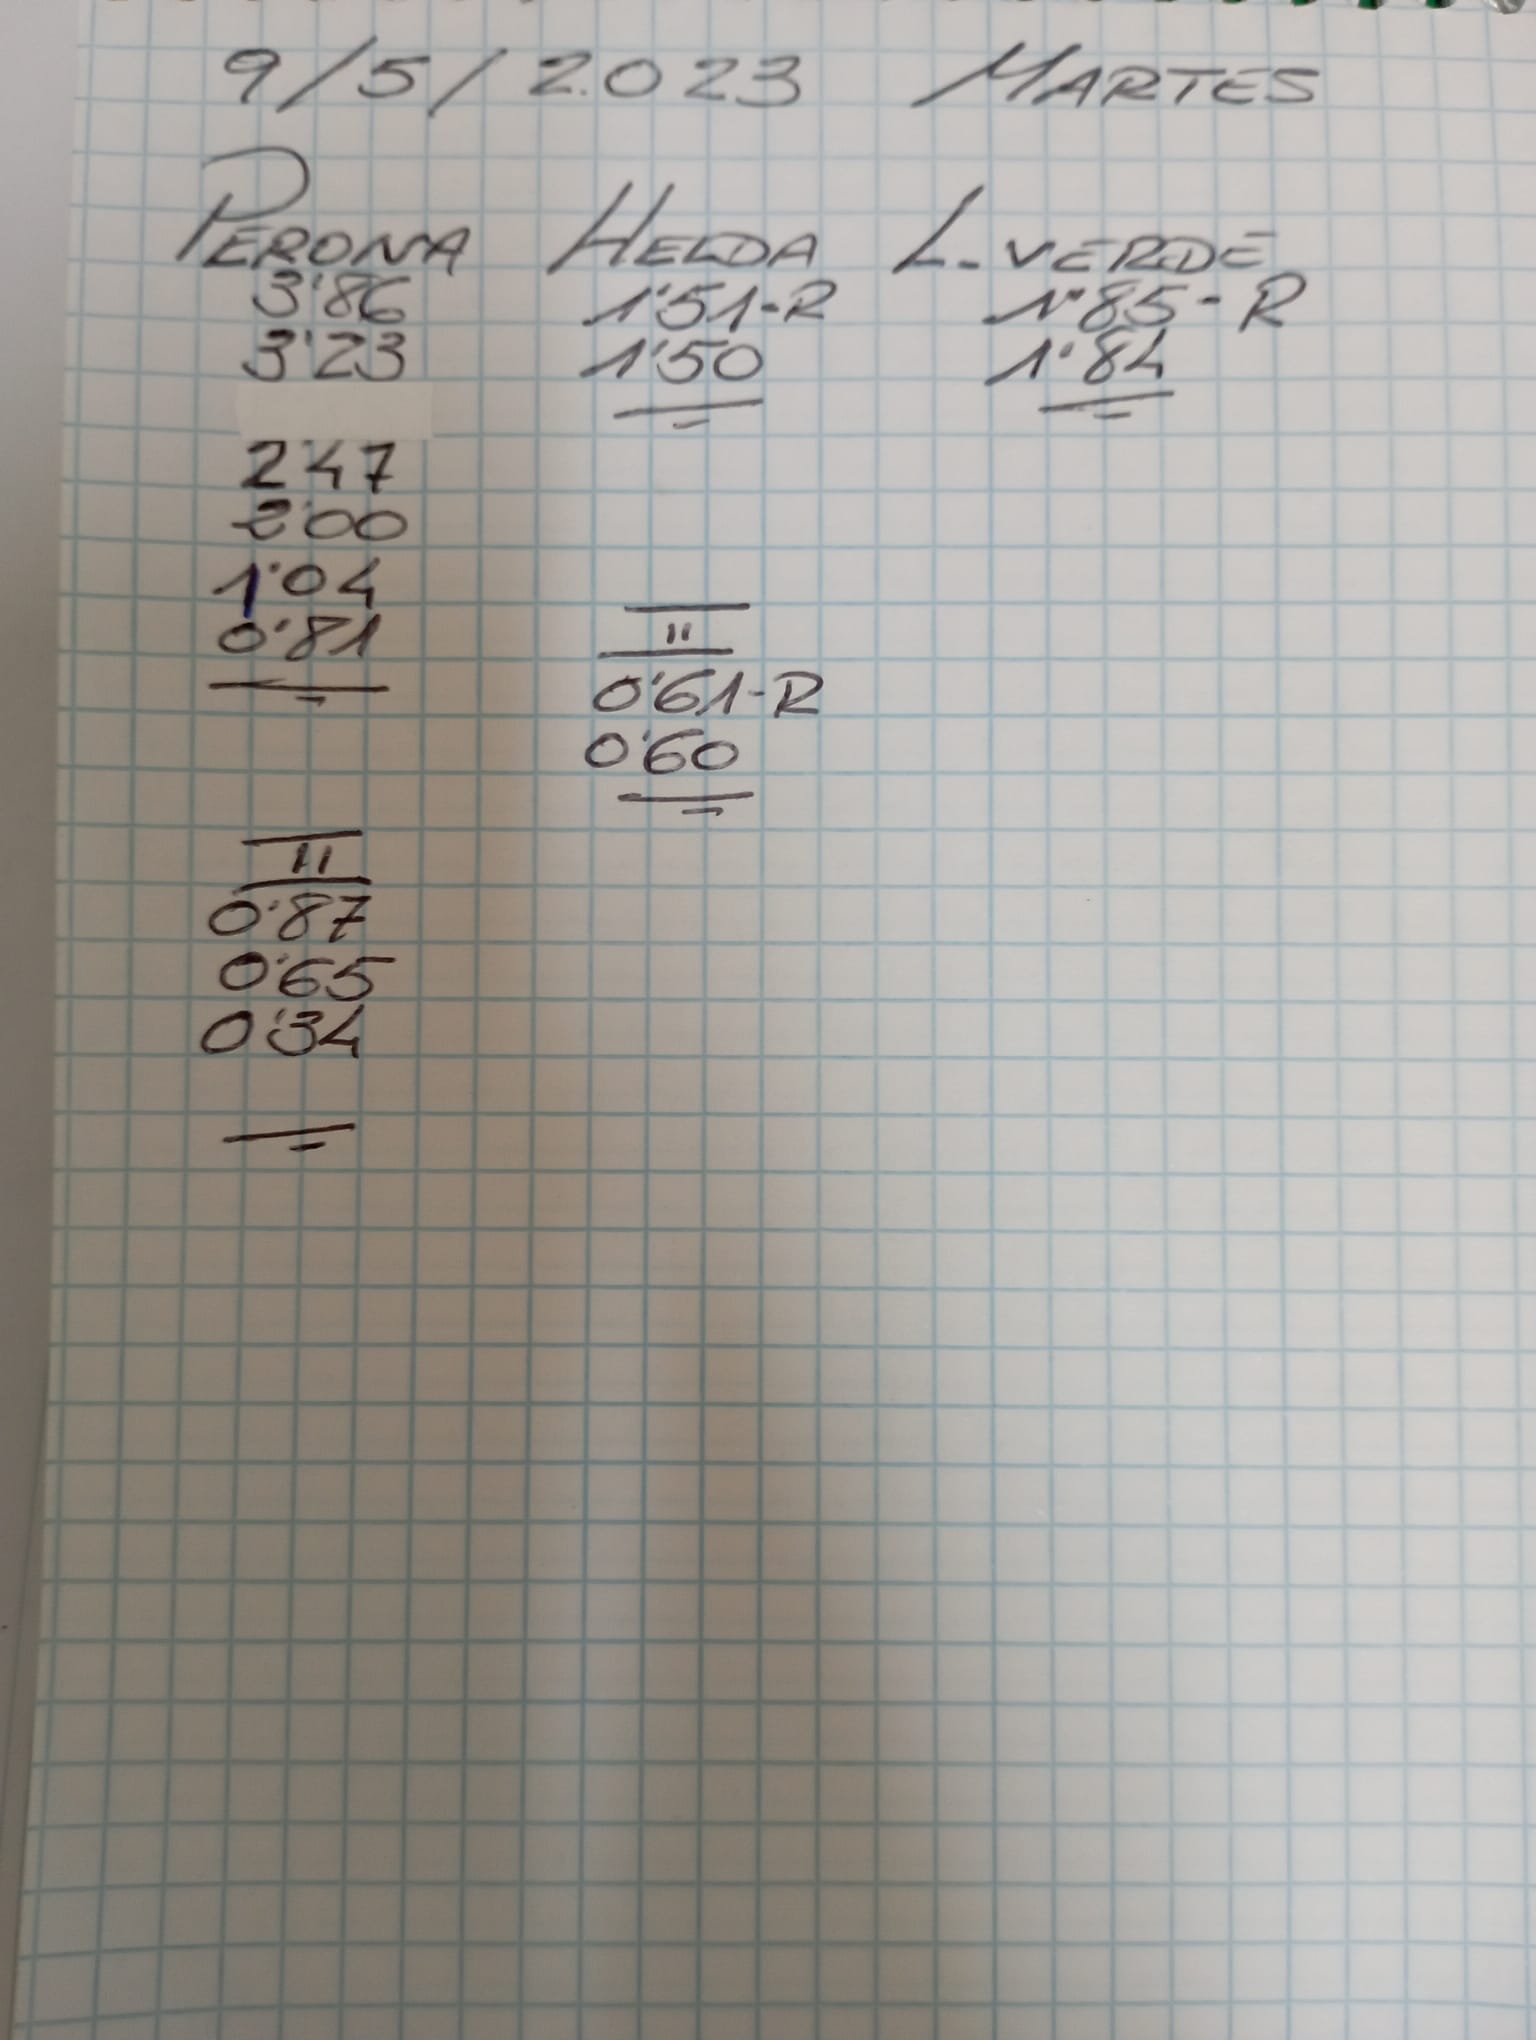 9/5/2.023 MARTES
PERONA HELDA L-VERDE
3'86 1'51-R 1'85-R
3'23 1'50 1'84
2'47
2'00
1'04
0'81 "
0'61-R
0'60
"
0'87
0'65
0'34